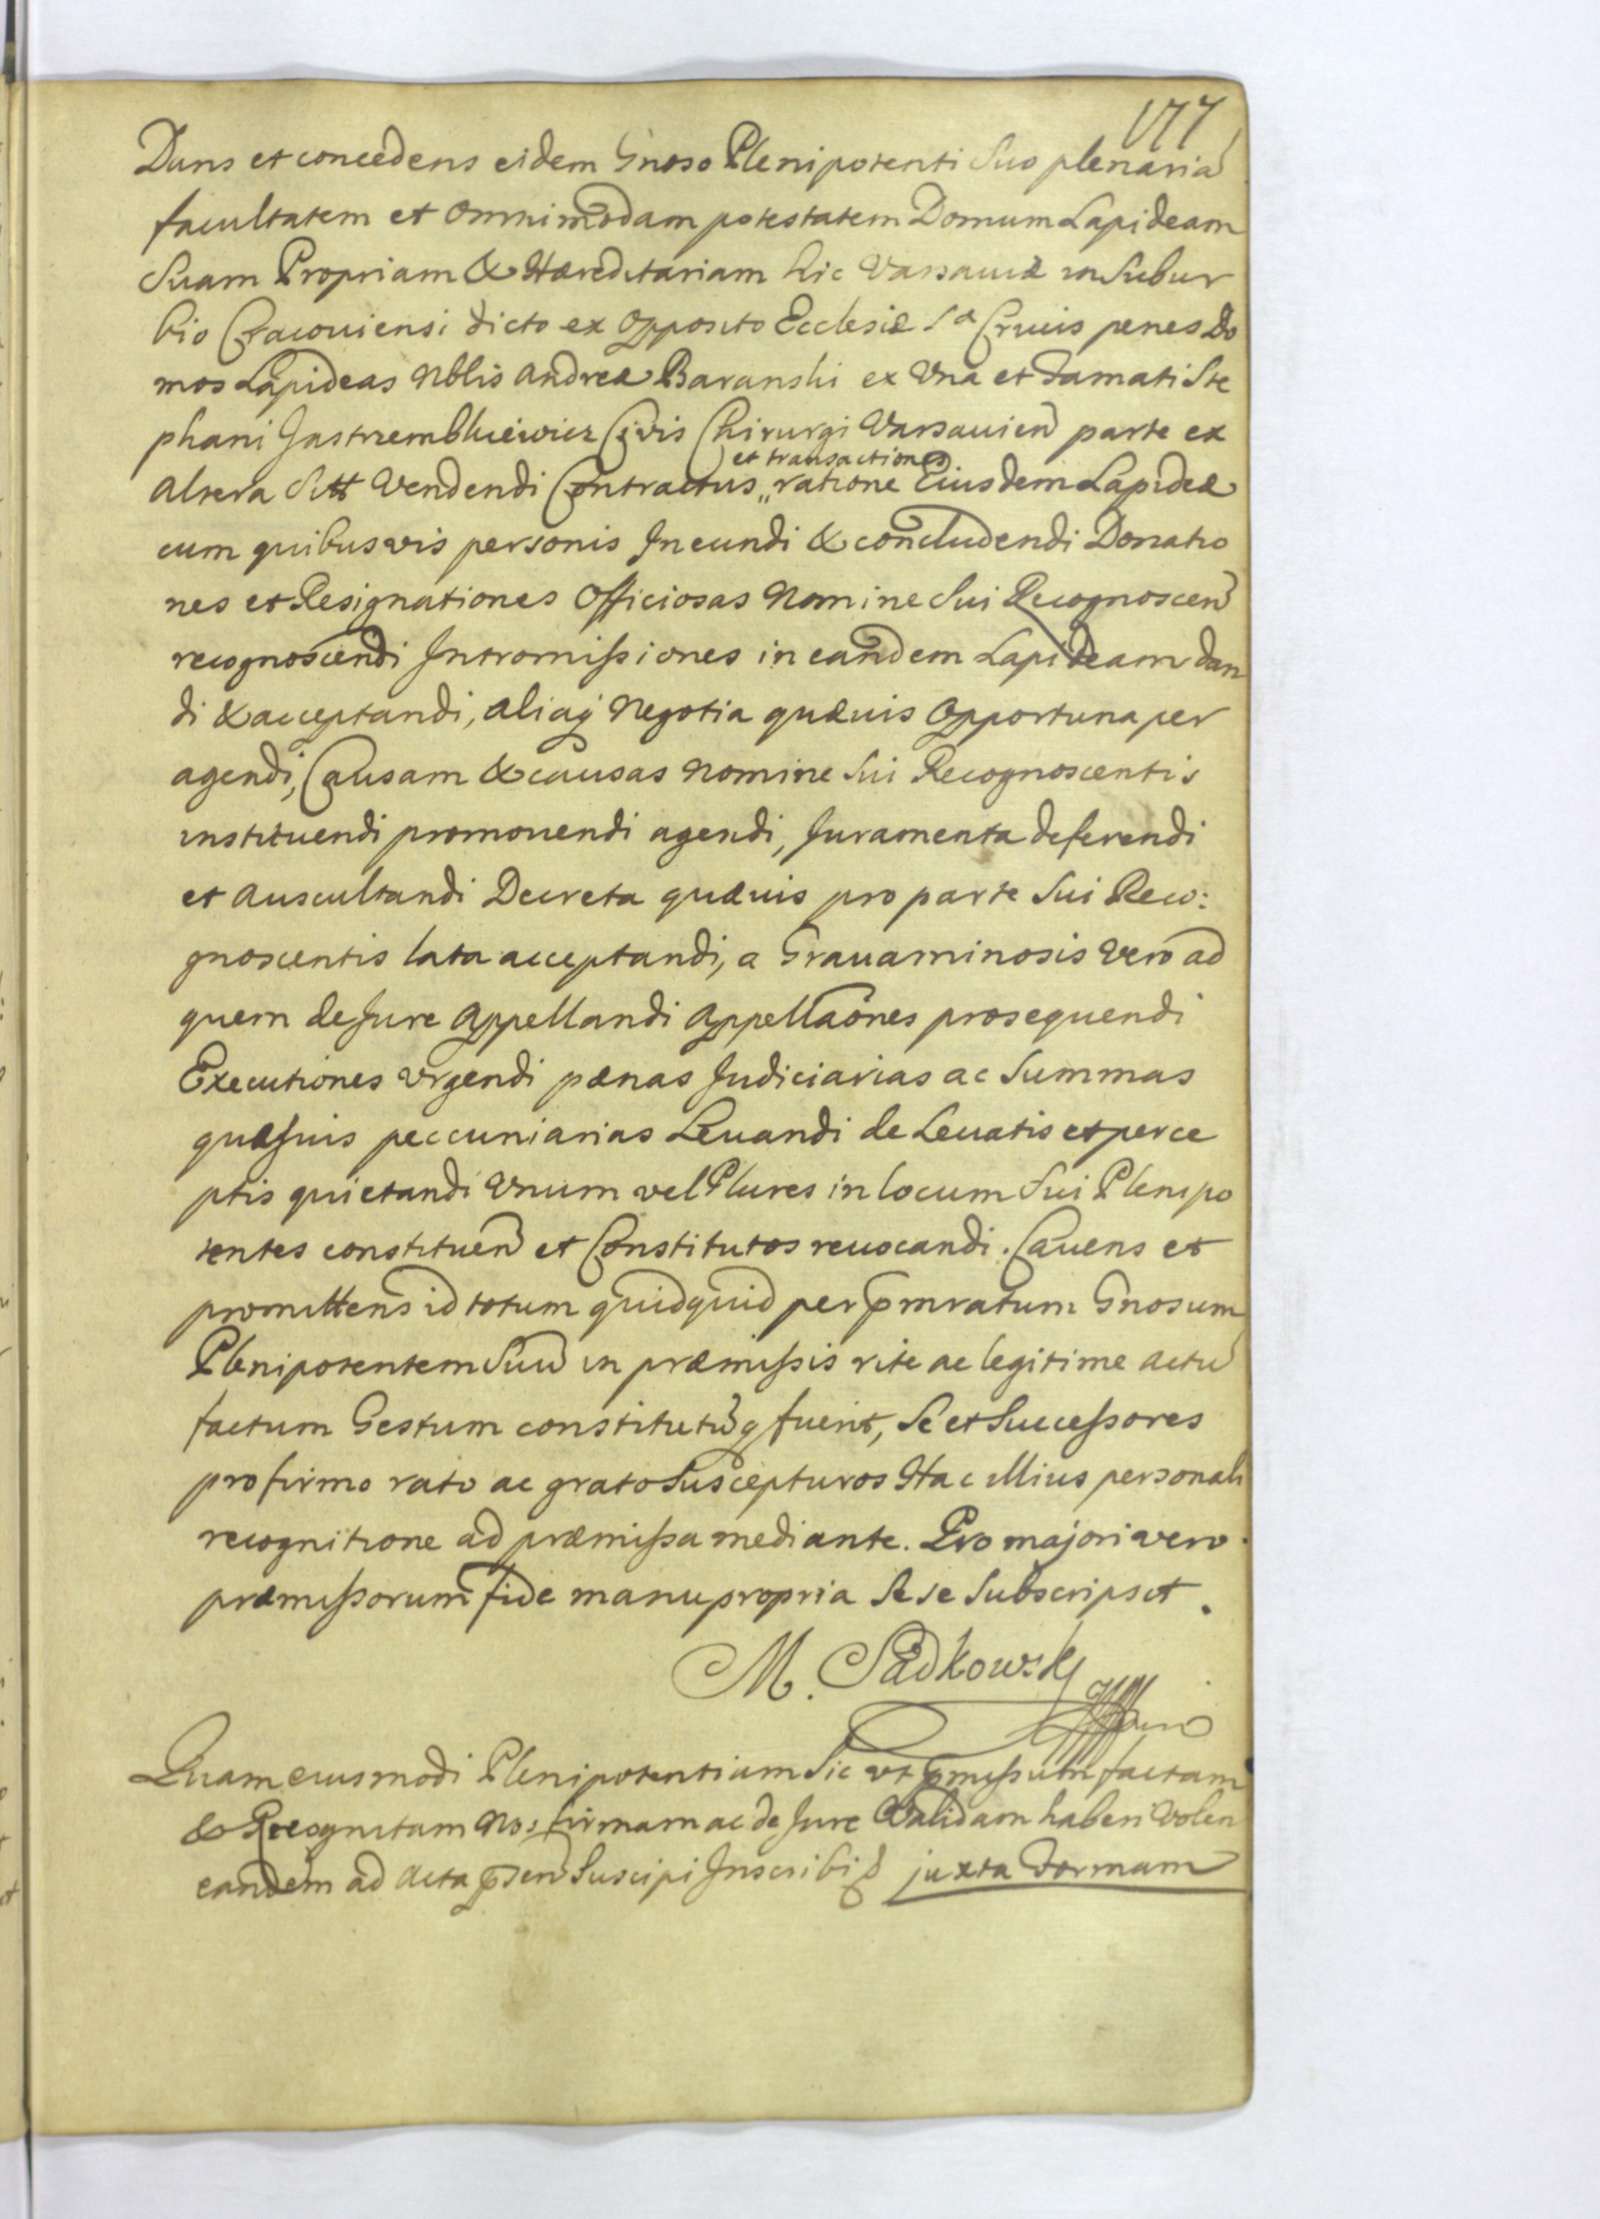 177
Dans et concedens eidem Gnoso Plenipotenti Suo plenariã
facultatem et omnimodam potestatem Domum Lapideam
Suam Propriam & Hæreditariam hic Varsaviæ in Subur
bio Cracoviensi dicto ex Opposito Ecclesiæ Sæ Crucis penes Do
mos Lapideas Nblis Andreæ Baranski ex Una et Famati Ste
phani Jastrzembkiewicz Civis Chirurgi Varsavien parte ex
et transactiones
altera Sitt Vendendi Contractus „ ratione Eiusdem Lapideæ
cum quibusvis personis Ineundi & concludendi Donatio
nes et Resignationes Officiosas Nomine Sui Recognoscen
recognoscendi Intromissiones in eandem Lapideam dan
di & acceptandi, aliaq Negotia quævis Opportuna per
agendi, Causam & causas Nomine Sui Recognoscentis
instituendi promovendi agendi, Juramenta deferendi
et Auscultandi Decreta quævis pro parte Sui Reco:
gnoscentis lata acceptandi, a Gravaminosis Vero ad
quem de Jure Appellandi Appellaões prosequendi
Executiones Urgendi pænas Judiciarias ac Summas
quæsvis peccuniarias Levandi de Levatis et perce
ptis quietandi Unum vel Plures in locum Sui Plenipo
tentes constituen et Constitutos revocandi. Cavens et
promittens id totum quidquid per pmratum Gnosum
Plenipotentem Suũ in præmissis rite ac legitime actũ
factum Gestum constitutũq fuerit, Se et Successores
pro firmo rato ac grato Suscepturos Hac illius personali
recognitione ad præmissa mediante. Pro majori vero
præmissorum fide manu propria Se se Subscripsit.
M. Sadkowski
Quam eiusmodi Plenipotentiam Sic ut pmissum factam
& Recognitam Nos firmam ac de Jure Validam haberi Volen
eandem ad Acta pñsen Suscipi Inscribi juxta Formam